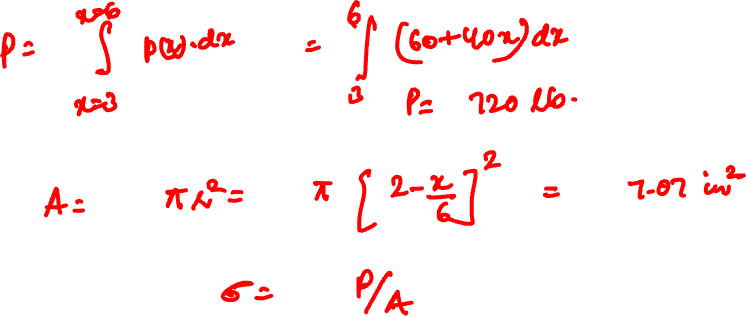 P = ∫_{x=3}^{x=6} p(x).dx = ∫_{3}^{6} (60+40x) dx
P= 720 lb.
A = πr² = π [2-x/6]² = 7.07 in²
σ = P/A